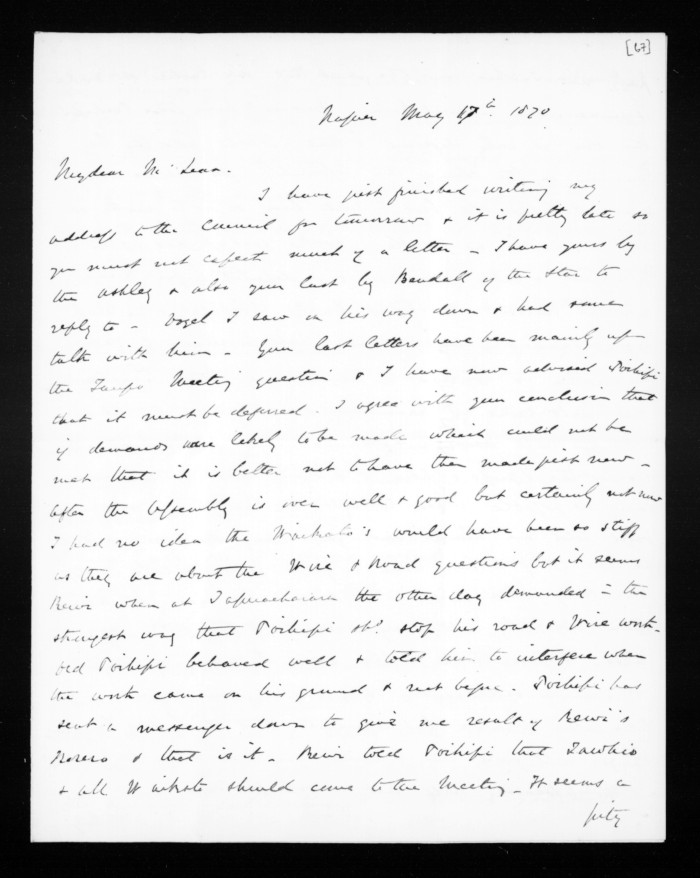 [67]
Napier May 17th. 1870
My dear McLean.
I have just finished writing my
address to the Council for tomorrow & it is pretty late so
you must not expect much of a letter – I have yours by
the Ashley & also your last by Bendall of the Star to
reply to – Vogel I saw on his way down & had some
talk with him – Your last letters have been mainly upon
the Taupo Meeting question & I have now advised Poihipi
that it must be deferred. I agree with your conclusion that
if demands were likely to be made which could not be
met that it is better not to have them made just now –
After the Assembly is over well & good but certainly not now
I had no idea the Waikato's would have been so stiff
as they are about the Wire & Road questions but it seems
Rewi when at Tapuaeharara the other day demanded in the
strongest way that Poihipi shd. stop his road & Wire work –
Old Poihipi behaved well & told him to interfere when
the work came on his ground & not before. Poihipi has
sent a messenger down to give me result of Rewi's
Korero & that is it – Rewi told Poihipi that Tawhio
& all Waikato should come to the Meeting – It seems a
pity